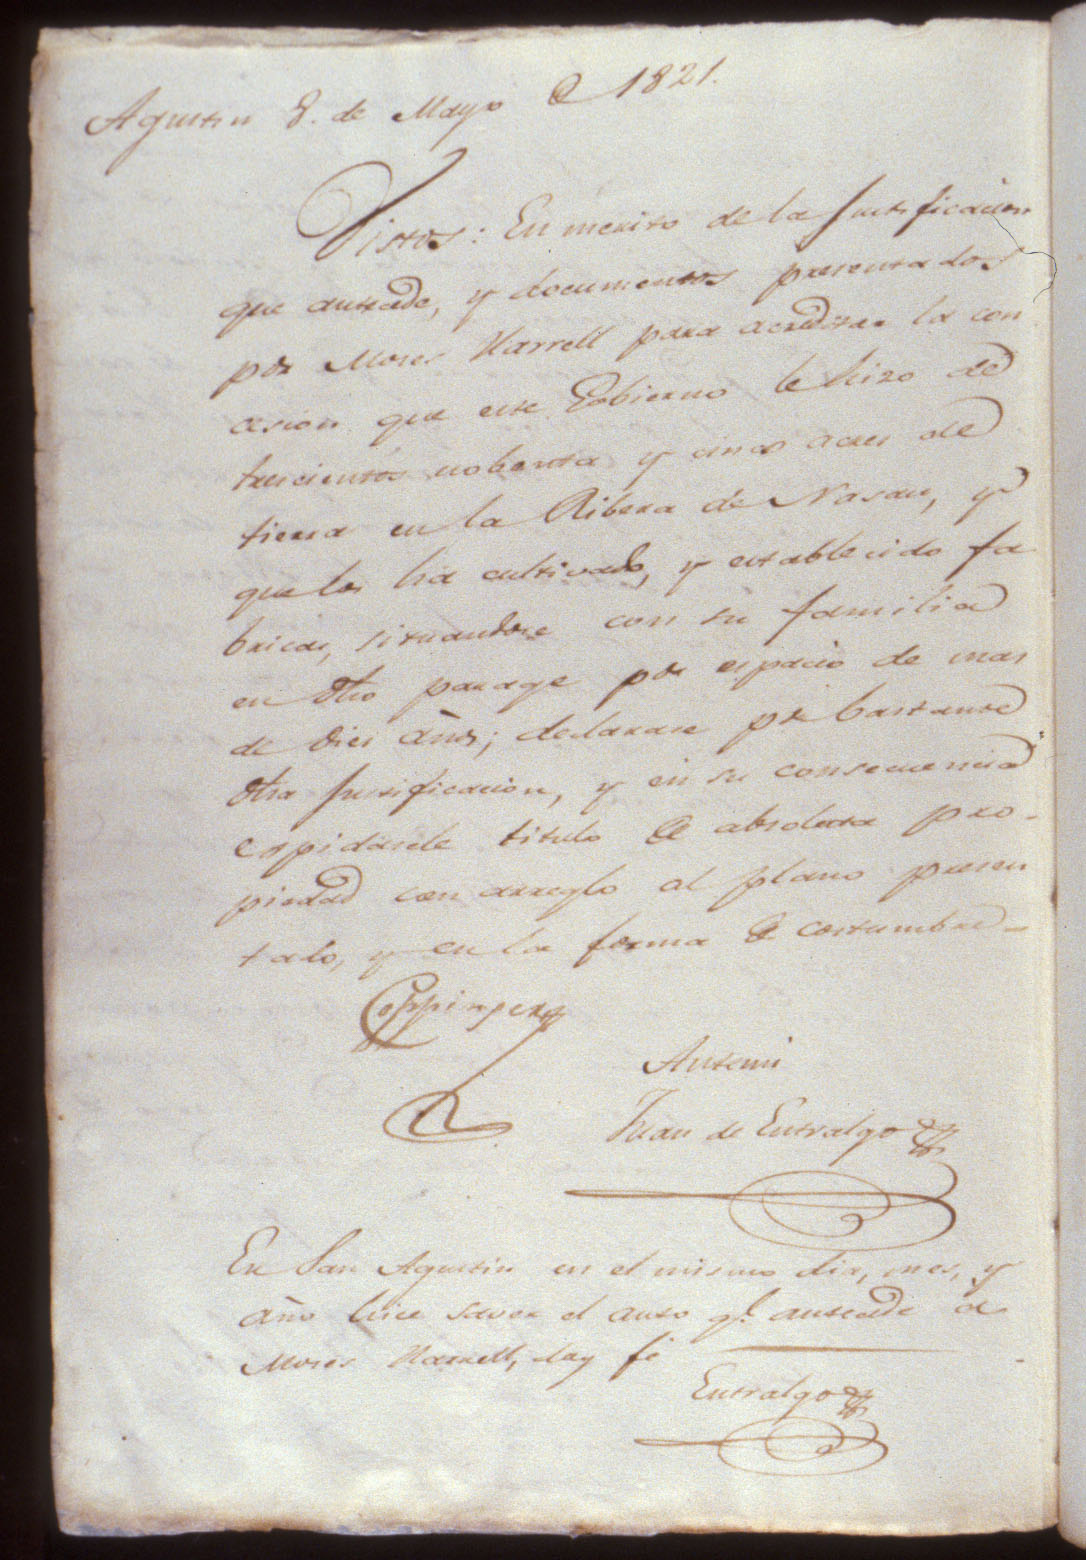 Agustin 8. de Mayo de 1821.
Vistos: En merito de la Justificacion
que antecede, y documentos presentados
por Moses Harrell para acreditar la con
cesion que este Gobierno le hizo de
trescientos nobenta y cinco acres de
tierra en la Ribera de Nasau, y
que los ha cultivado, y establecido fa
bricas, situandose con su familia
en dho parage por espacio de mas
de dies años; declarase pr bastante
dha Justificacion, y en su consecuencia
espidasele titulo de absoluta pro-
piedad con arreglo al plano presen
tado, y en la forma de costumbre-
Coppinger
Antemi
Juan de Entralgo
En San Agustin en el mismo dia, mes, y
año hice saver el auto qe. antecede a
Moses Harrell, doy fé
Entralgo